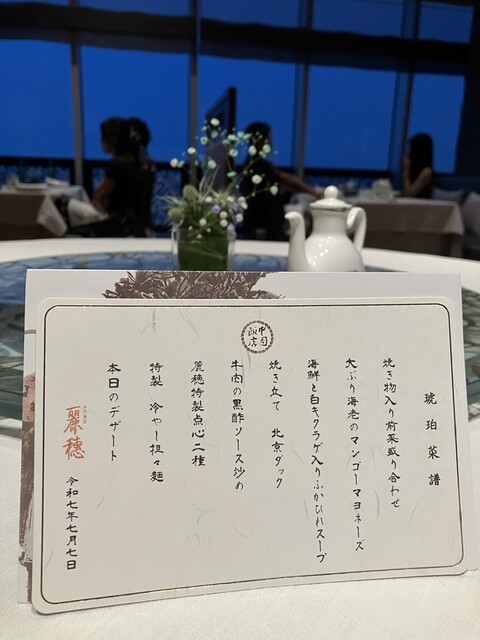 中国飯店
琥珀菜譜
焼き物入り前菜盛り合わせ
大ぶり海老のマンゴーマヨネーズ
海鮮と白キクラゲ入りふかひれスープ
焼き立て 北京ダック
牛肉の黒酢ソース炒め
麗穂特製点心二種
特製 冷やし担々麺
本日のデザート
麗穂
令和七年七月七日